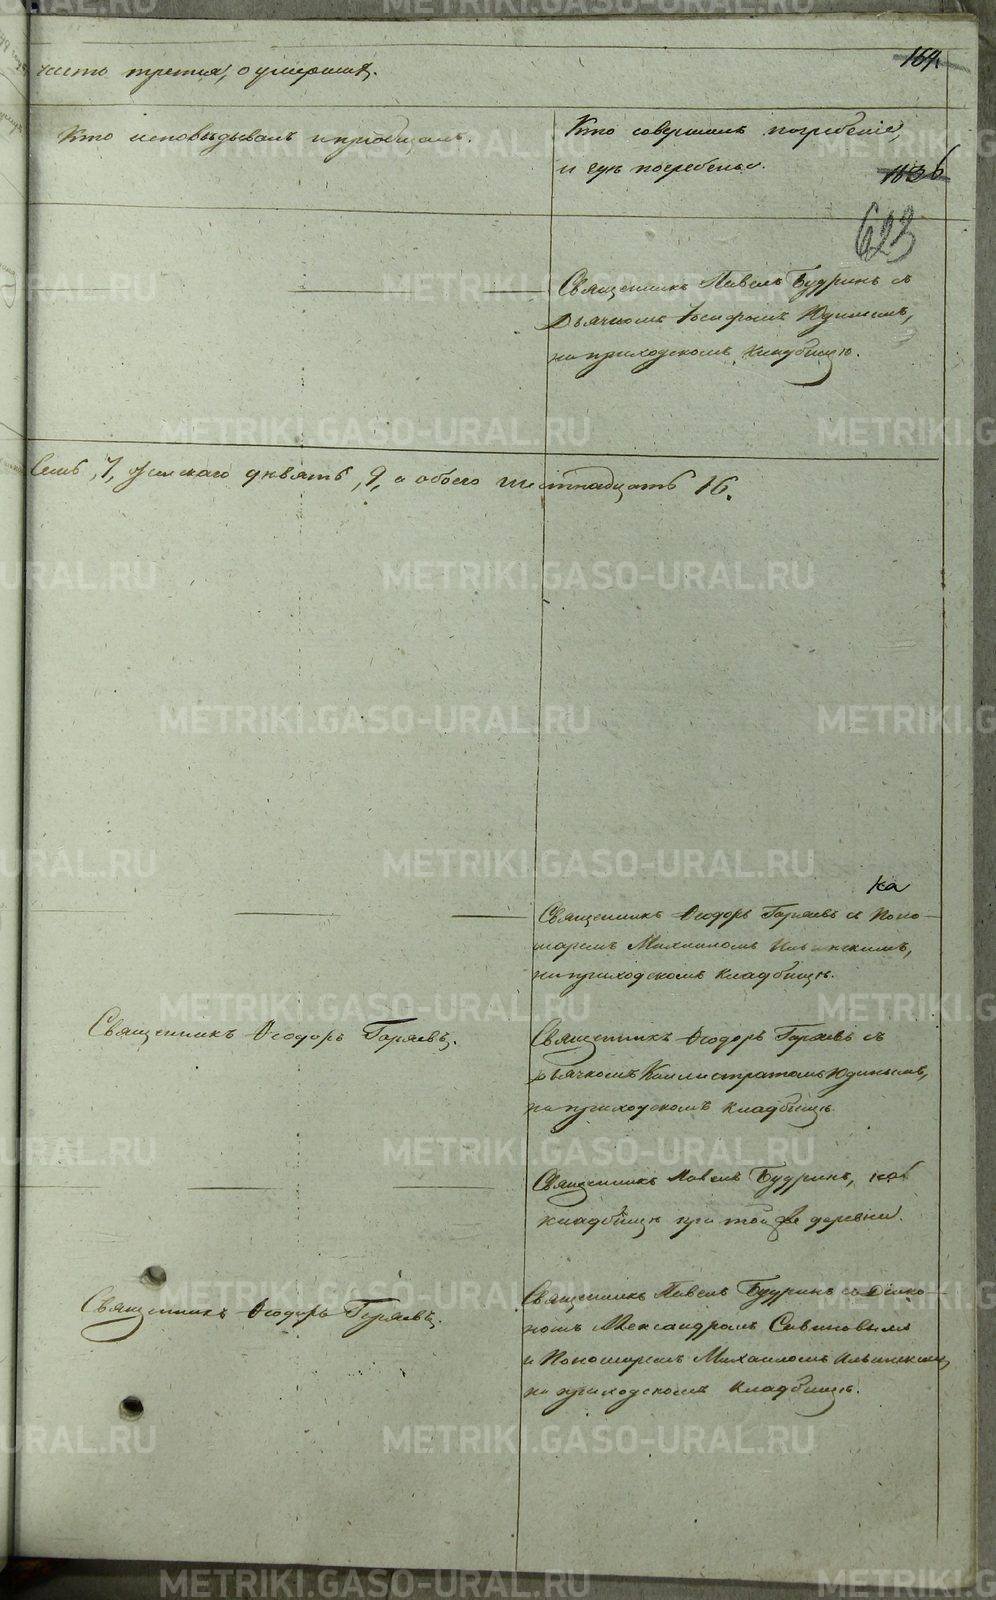 часть третья, о умершихъ.
164.
Кто исповѣдывалъ и пріобщалъ.
Кто совершалъ погребеніе,
и гдѣ погребены.
623
Священникъ Павелъ Будринъ съ
Дьячкомъ Іосифомъ Юдинымъ,
на приходскомъ кладбищѣ.
семь, 7, женскаго девять, 9, а обоего шестнадцать 16.
ка
Священникъ Ѳеодоръ Горяевъ съ Поно-
маремъ Михаиломъ Ильинскимъ,
на приходскомъ кладбищѣ.
Священникъ Ѳеодоръ Горяевъ.
Священникъ Ѳеодоръ Горяевъ съ
Дьячкомъ Каллистратомъ Юдинымъ,
на приходскомъ кладбищѣ.
Священникъ Павелъ Будринъ, на
кладбищѣ при той же деревни.
Священникъ Ѳеодоръ Горяевъ.
Священникъ Павелъ Будринъ съ Діако-
номъ Александромъ Савиновымъ
и Пономаремъ Михаиломъ Ильинскимъ,
на приходскомъ кладбищѣ.
METRIKI.GASO-URAL.RU